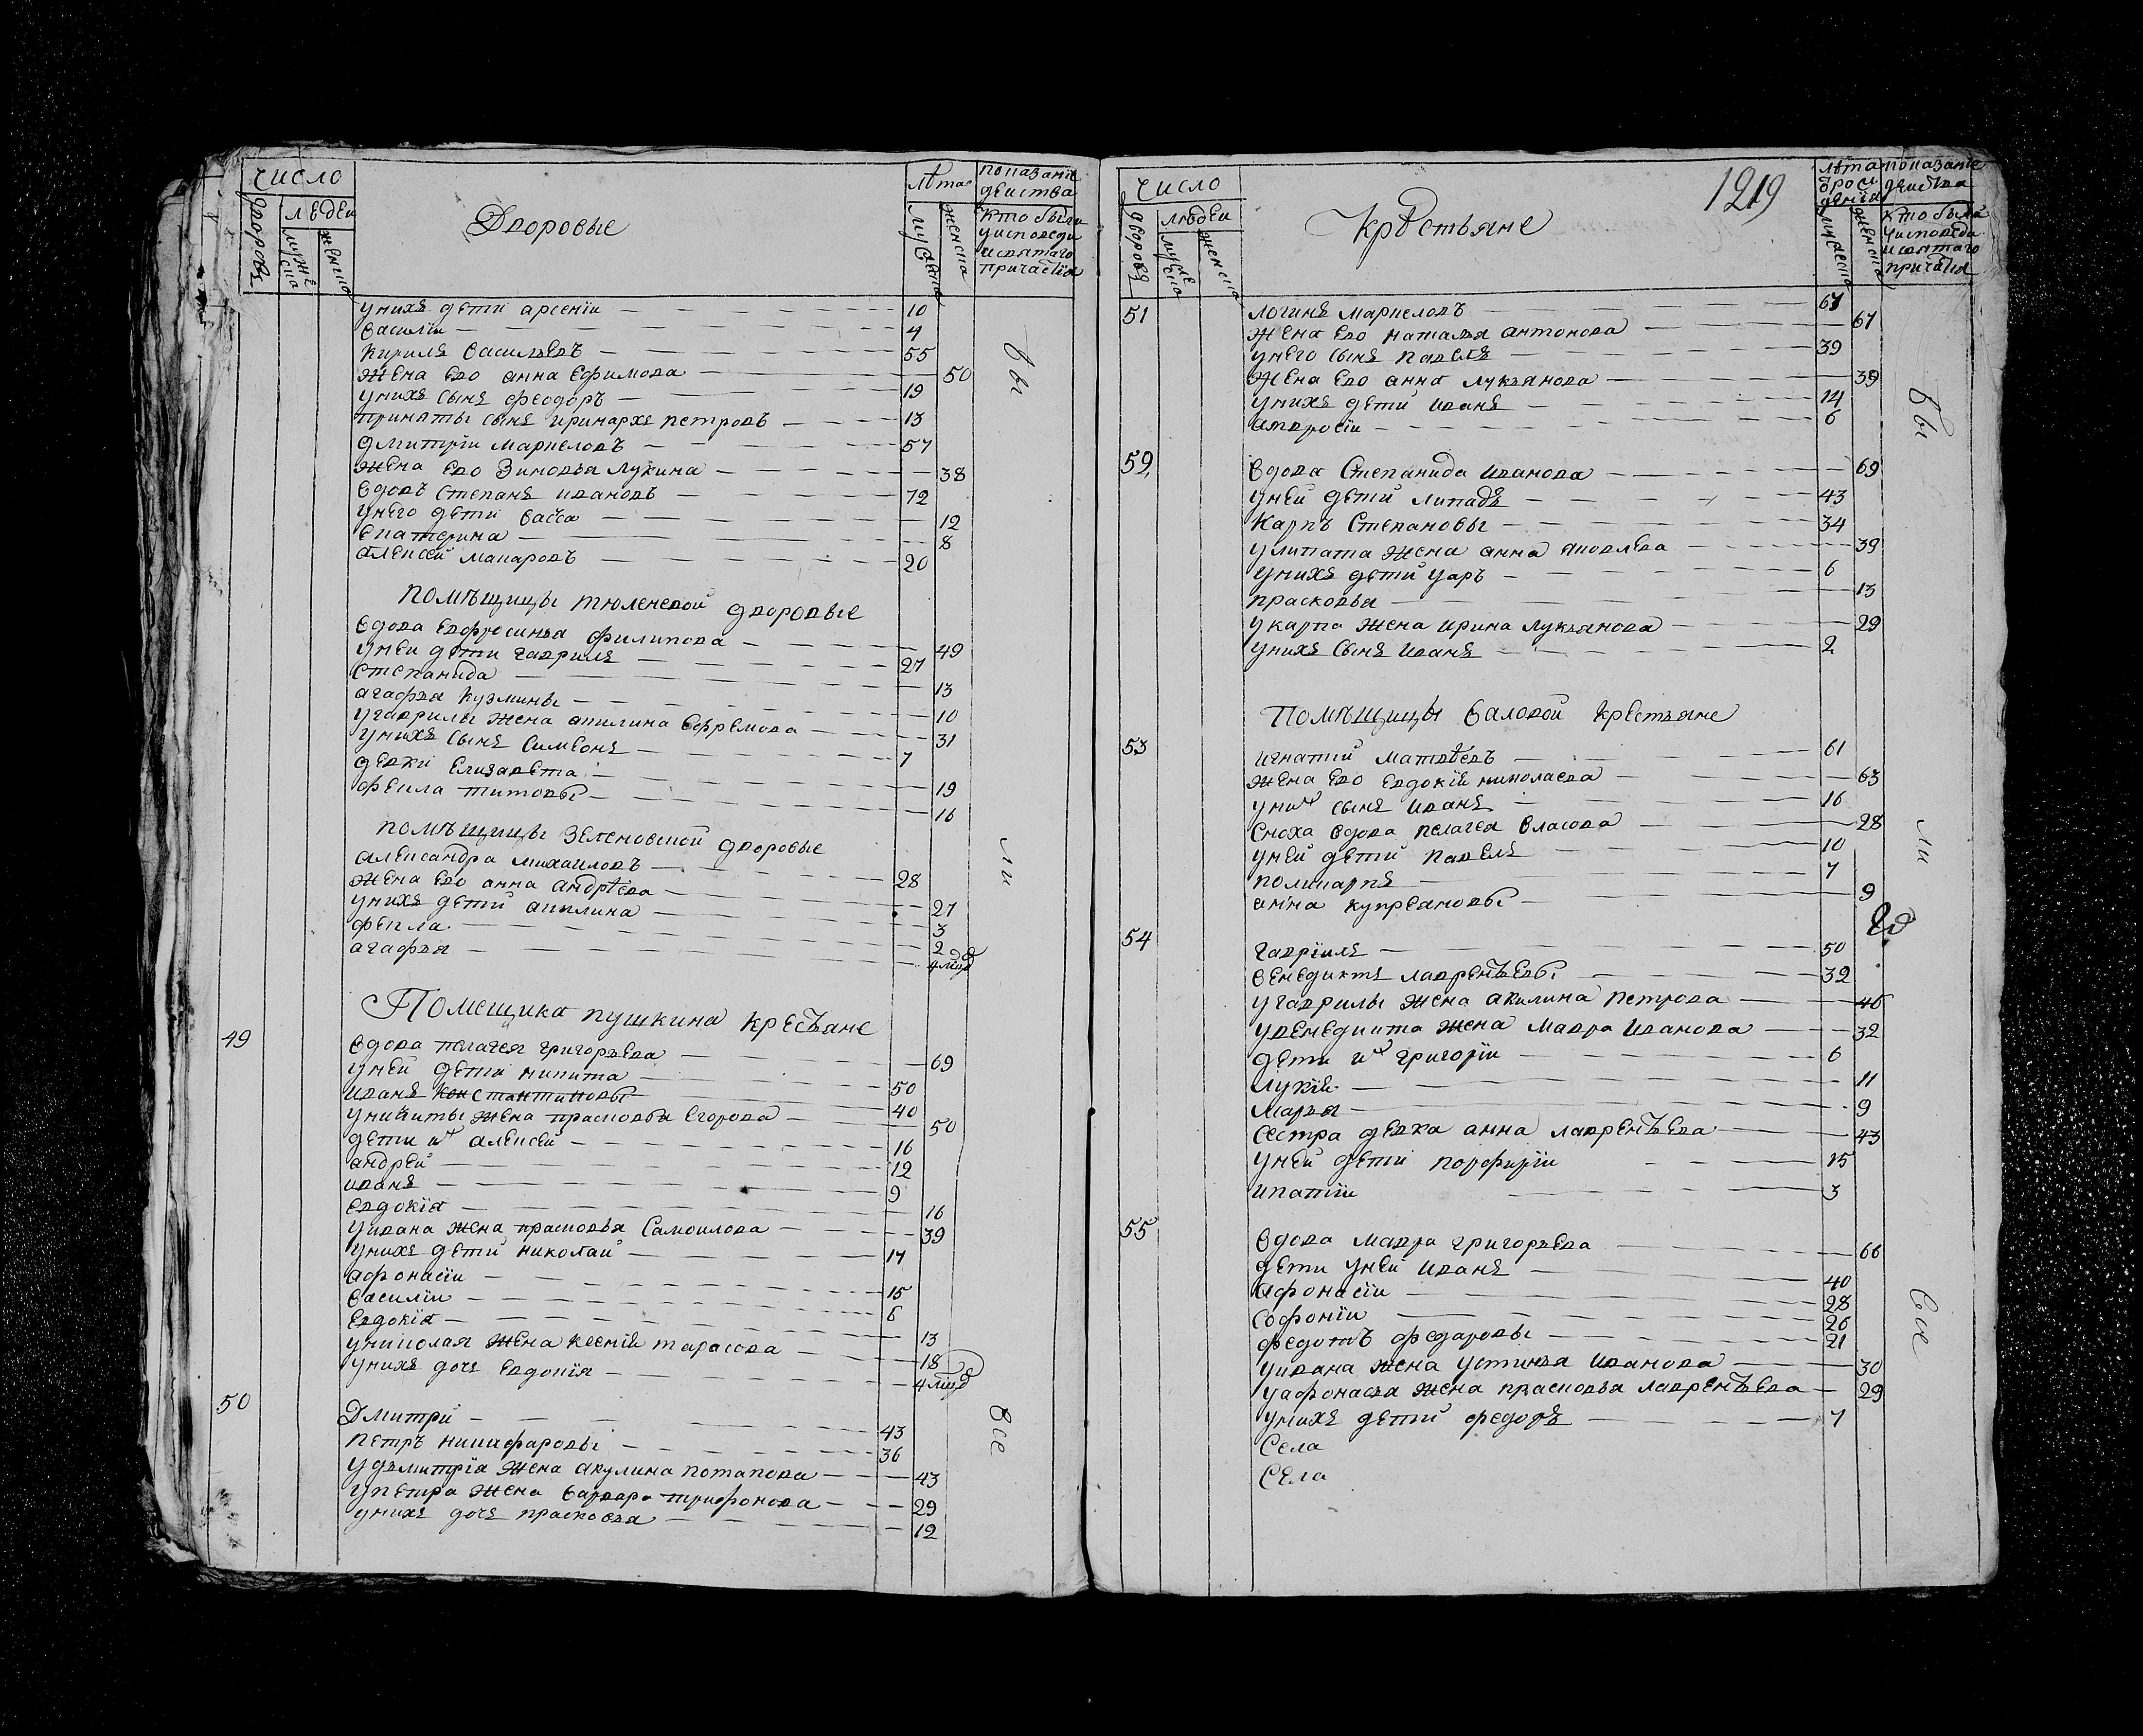 число
Дворовые
лѣта
показанїе действа
дворовъ
людеи
мужеска
женска
мужеска
женска
кто были уисповеди исвятаго причастїя
унихъ дети арсенїи 10
василїи 4
кирилъ васильевъ 55
жена ево анна ефимова 50
унихъ сынъ феодоръ 19
приняты сынъ иринархъ петровъ 13
дмитрїи маркеловъ 57
жена ево зиновья лукина 38
вдовъ степанъ ивановъ 72
унего дети васса 12
екатерина 8
алексей макаровъ 20
помѣщицы тюленевой дворовые
вдова евфросинья филипова 49
уней дети гаврилъ 27
степанида 13
агафья кузмины 10
угаврилы жена акилина ефремова 31
унихъ сынъ симеонъ 7
девки елизавета 19
фекла титовы 16
помѣщицы зеленовской дворовые
александра михаиловъ 28
жена ево анна андрѣева 27
унихъ дети акилина 3
фекла 2
агафья 4 мцд
Помещика пушкина кресьяне
49
вдова пелагея григорьева 69
уней дети никита 50
иванъ константиновы 40
уникиты жена прасковья егорова 50
дети их алексей 16
андрей 12
иванъ 9
евдокїя 16
уивана жена прасковья самоилова 39
унихъ дети николай 17
афонасїи 15
василїи 6
евдокїя 13
униколая жена ксенїя тарасова 18
унихъ дочь евдокїя 4 мцд
50
Дмитри 43
петръ никифаровы 36
удьмитрїя жена акулина потапова 43
упетра жена варвара трифонова 29
унихъ дочь прасковья 12
вы
ли
все
число
Крѣстьяне
1219
лѣта
показанїе действа
дворовъ
людеи
мужеска
женска
мужеска
женска
кто были уисповеди исвятаго причастїя
51
логинъ маркеловъ 67
жена ево наталья антонова 67
унего сынъ павелъ 39
жена ево анна лукьянова 39
унихъ дети иванъ 14
амвросїи 6
52
вдова степанида иванова 69
уней дети липатъ 43
карпъ степановы 34
улипата жена анна яковлева 39
унихъ дети уаръ 6
прасковья 13
укарпа жена ирина лукьянова 29
унихъ сынъ иванъ 2
Помѣщицы валовой крестьяне
53
игнатий матвѣевъ 61
жена ево евдокїя николаева 63
них сынъ иванъ 16
сноха вдова пелагея власова 28
уней дети павелъ 10
поликарпъ 7
анна купреановы 9
54
гаврїилъ 50
венедиктъ лаврентьевы 32
угаврилы жена акилина петрова 46
увенедикта жена мавра иванова 32
дети их григорїи 6
лукїя 11
марья 9
сестра девка анна лаврентьева 43
уней дети порфирїи 15
ипатїи 3
55
вдова мавра григорьева 66
дети уней иванъ 40
афонасїи 28
софонїи 26
федотъ федаровы 21
уивана жена устинья иванова 30
уафонасья жена прасковья лаврентьева 29
унихъ дети федоръ 7
Села
Села
вы
ли
все